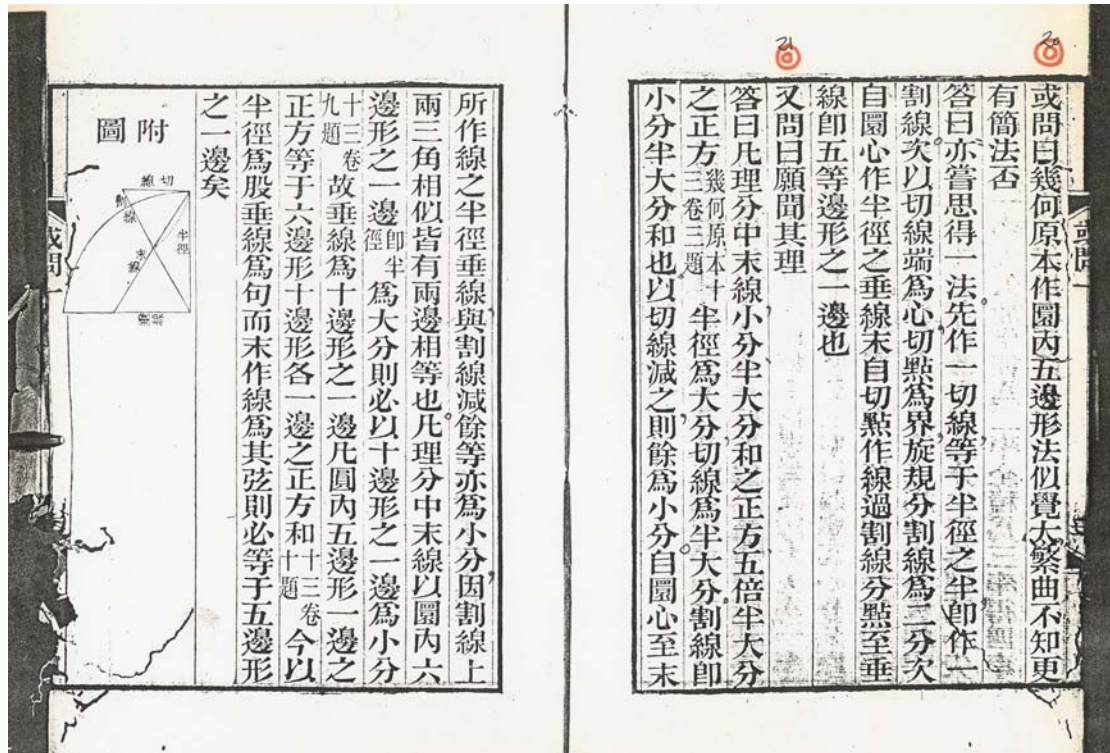 20
或問曰幾何原本作圜內五邊形法似覺太繁曲不知更
有簡法否
答曰亦嘗思得一法先作一切線等于半徑之半卽作一
割線次以切線端爲心切點爲界旋規分割線爲二分次
自圜心作半徑之垂線末自切點作線過割線分點至垂
線卽五等邊形之一邊也
21
又問曰願聞其理
答曰凡理分中末線小分半大分和之正方五倍半大分
之正方幾何原本十三卷三題半徑爲大分切線爲半大分割線卽
小分半大分和也以切線減之則餘爲小分自圜心至末
或問一
所作線之半徑垂線與割線減餘等亦爲小分因割線上
兩三角相似皆有兩邊相等也凡理分中末線以圜內六
邊形之一邊卽半徑爲大分則必以十邊形之一邊爲小分
十三卷九題故垂線爲十邊形之一邊凡圓內五邊形一邊之
正方等于六邊形十邊形各一邊之正方和十三卷十題今以
半徑爲股垂線爲句而末作線爲其弦則必等于五邊形
之一邊矣
附圖
切線
割線
半徑
末線